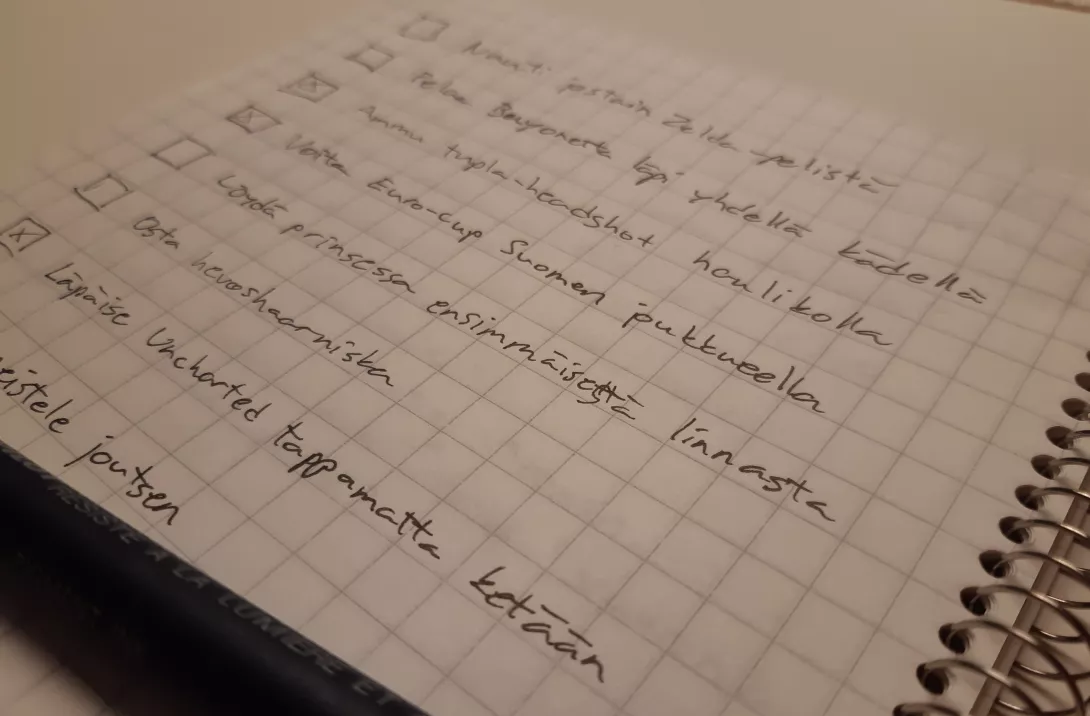 Nauti jostain Zelda-pelistä
Pelaa Bayonetta läpi yhdellä kädellä
Ammu tupla-headshot haulikolla
Voita Euro-cup Suomen joukkueella
Löydä prinsessa ensimmäisestä linnasta
Osta hevoshaarniska
Läpäise Uncharted tappamatta ketään
joutsen
A LA LUMIERE ET